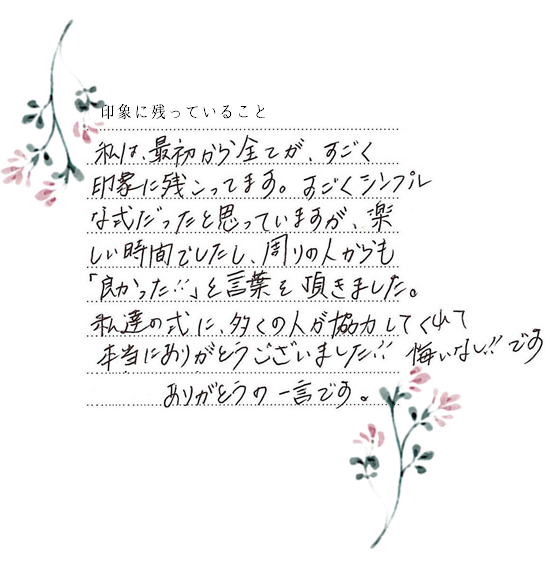 印象に残っていること
私は、最初から全てが、すごく
印象に残こってます。すごくシンプル
な式だったと思っていますが、楽
しい時間でしたし、周りの人からも
「良かった!!」と言葉を頂きました。
私達の式に、多くの人が協力してくれて
本当にありがとうございました!! 悔いなし!!です
ありがとうの一言です。